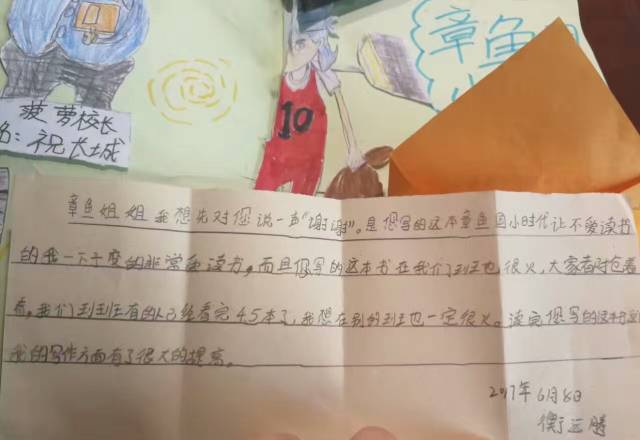 章鱼
10
菠萝校长
名：祝长城
章鱼姐姐我想先对您说一声“谢谢”。是您写的这本章鱼国小时代让不爱读书
的我一下子变的非常爱读书，而且您写的这本书在我们班也很火，大家都对它着
看。我们班有的人已经看完45本了，我想在别的班也一定很火。读完您写的这本书
我的写作方面有了很大的提高。
2017年6月8日
衡运腾